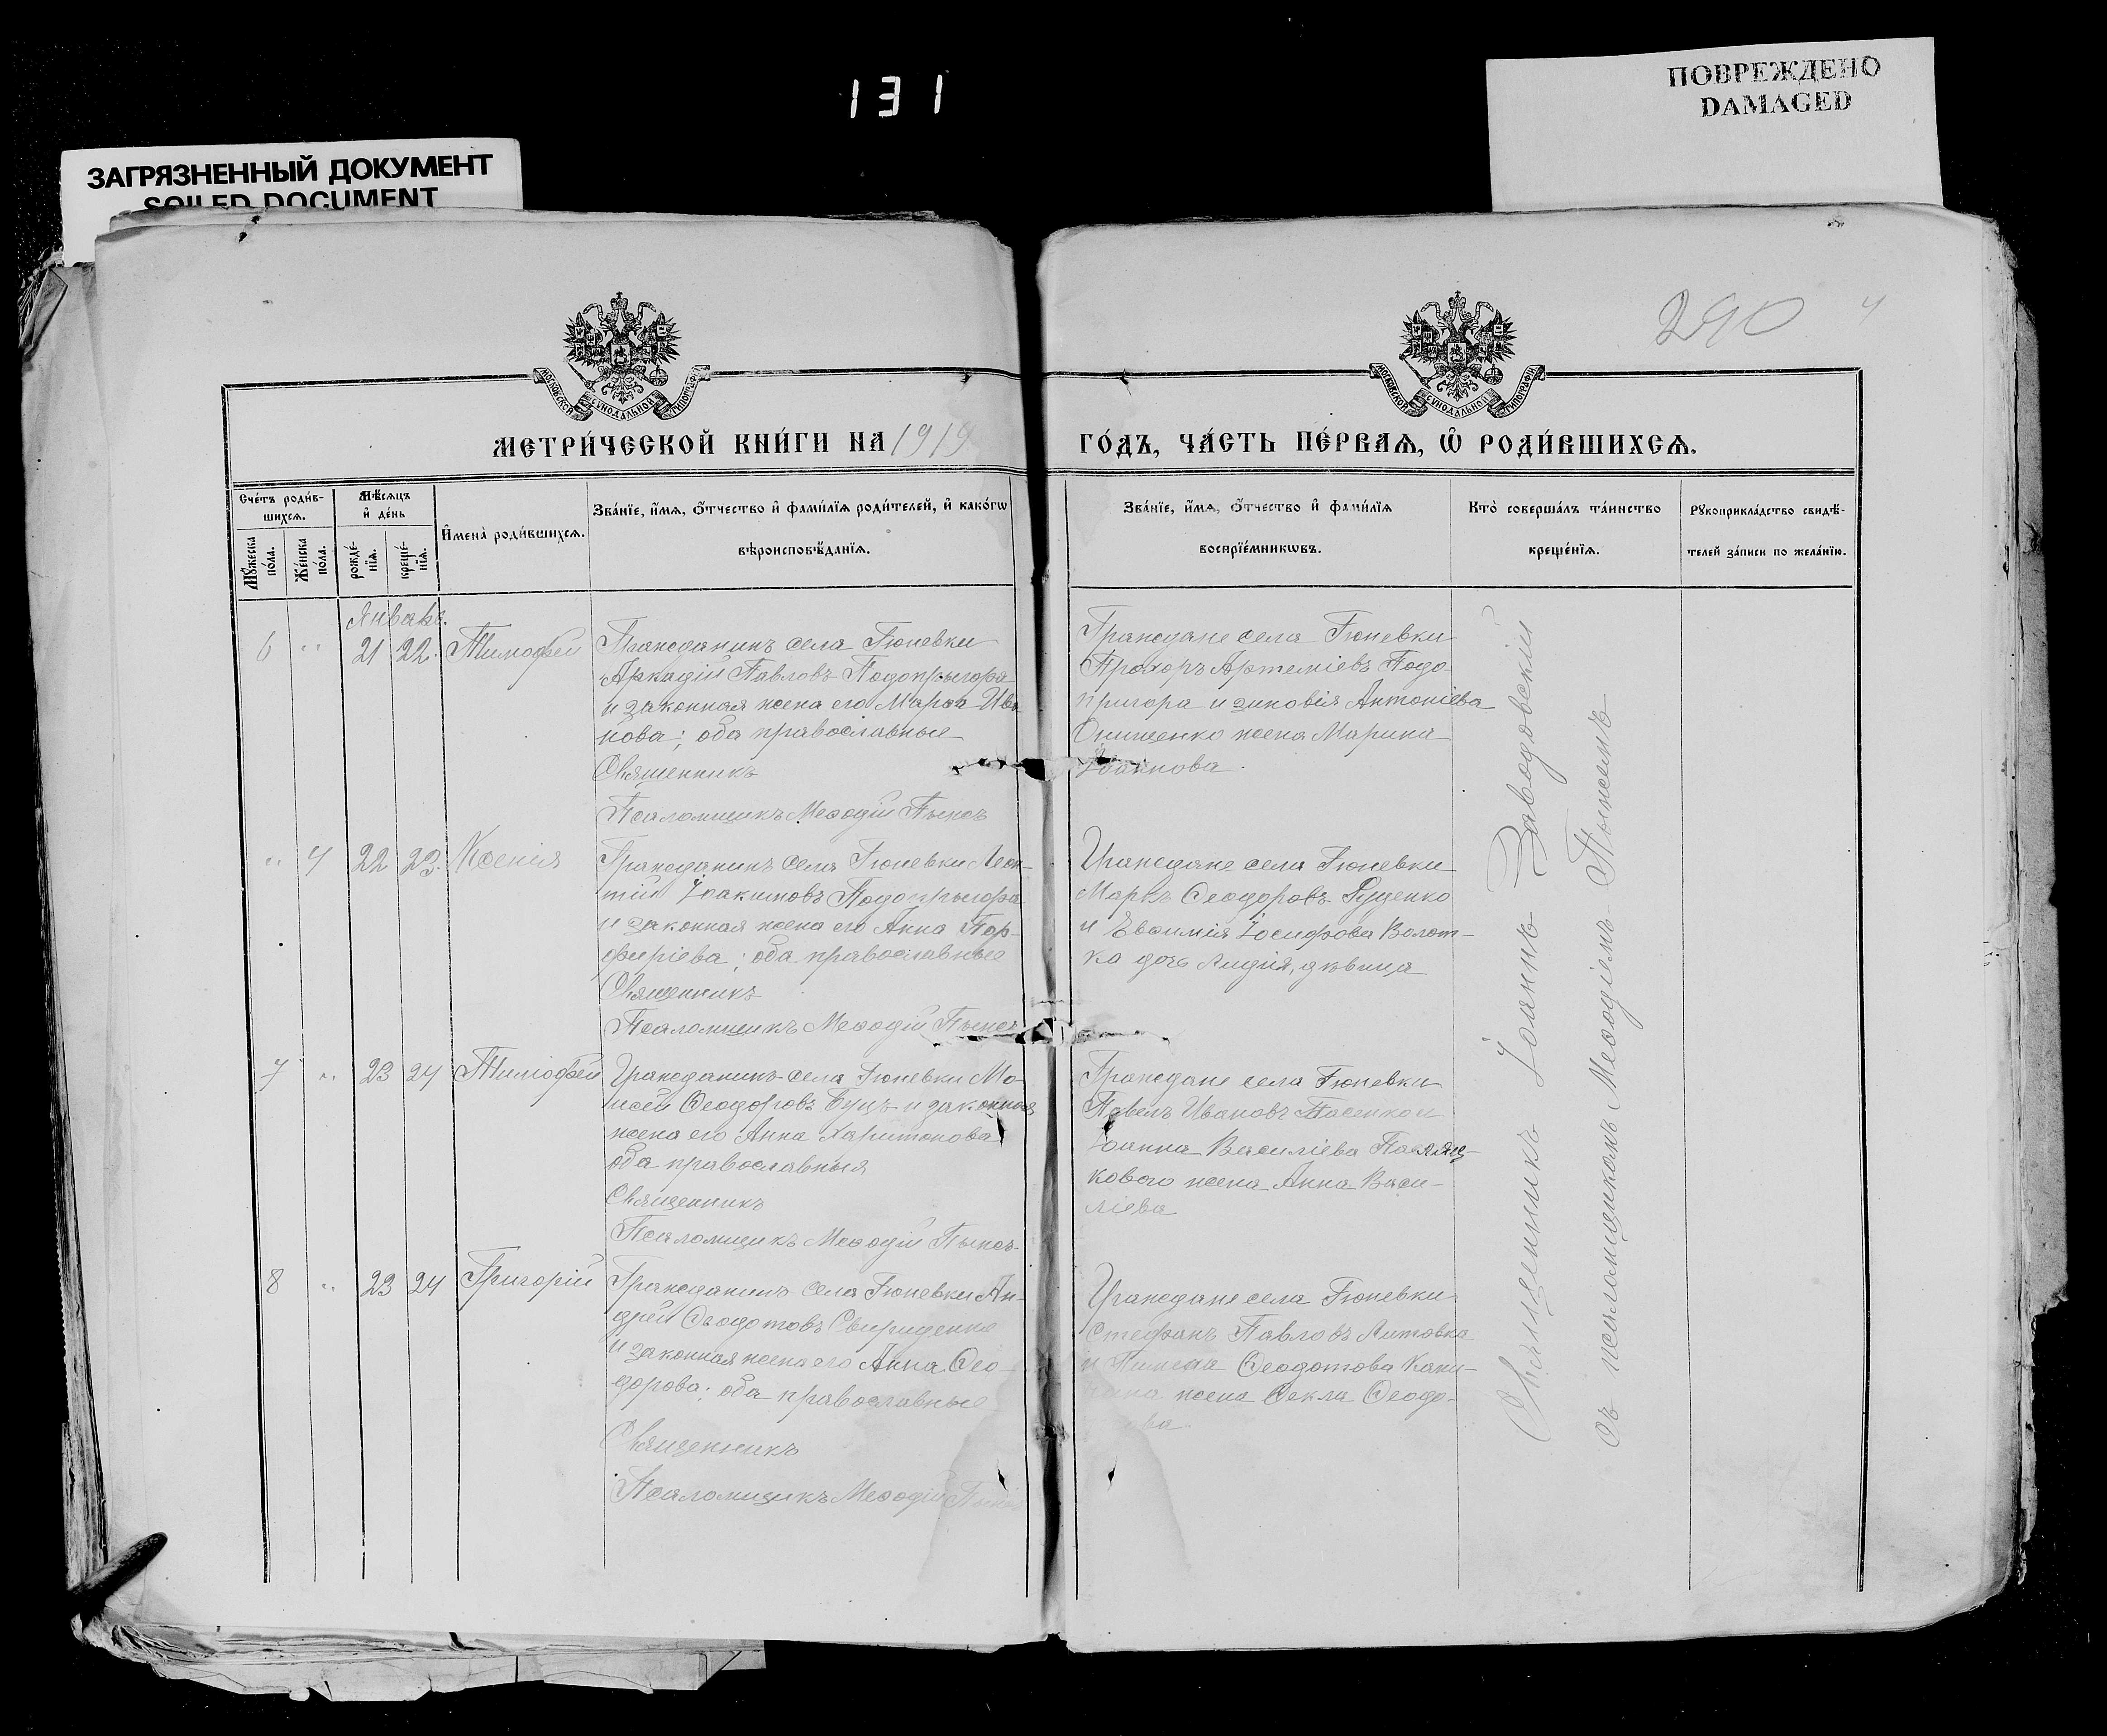 131
ПОВРЕЖДЕНО
DAMAGED
ЗАГРЯЗНЕННЫЙ ДОКУМЕНТ
SOILED DOCUMENT
290
4
МОСКОВСКОЙ СѴНОДАЛЬНОЙ ТИПОГРАФІИ
МОСКОВСКОЙ СѴНОДАЛЬНОЙ ТИПОГРАФІИ
МЕТРИ́ЧЕСКОЙ КНИ́ГИ НА 1919
ГО́ДЪ, ЧА́СТЬ ПЕ́РВАѦ, Ѡ҆ РОДИ́ВШИХСѦ.
Сче́тъ роди́в-
шихсѧ.
Мꙋ́жеска по́ла.
Же́нска по́ла.
Мѣ́сѧцъ
и҆ де́нь
рожде́-
нїѧ.
креще́-
нїѧ.
И҆мена̀ роди́вшихсѧ.
Зва́нїе, и҆́мѧ, ѻ҆́тчество и҆ фами́лїѧ роди́телей, и҆ како́гѡ
вѣроисповѣ́данїѧ.
Зва́нїе, и҆́мѧ, ѻ҆́тчество и҆ фами́лїѧ
воспрїе́мникѡвъ.
Кто̀ соверша́лъ та́инство
креще́нїѧ.
Рꙋкоприкла́дство свидѣ́-
телей за́писи по жела́нїю.
Январь.
6 " 21 22. Тимофей
Гражданинъ села Гюневки
Аркадій Павловъ Подопрыгора
и законная жена его Марѳа Ива
нова; оба православные
Священникъ
Псаломщикъ Меѳодій Пыжъ
Граждане села Гюневки
Прохоръ Артеміевъ Подо-
пригора и Зиновія Антоніева
Онищенко жена Марина
Іоаннова.
" 4 22 23. Ксенія
Гражданинъ села Гюневки Леон-
тій Іоакимовъ Подопрыгора
и законная жена его Анна Пор-
фиріева; оба православные
Священникъ
Псаломщикъ Меѳодій Пыжъ
Граждане села Гюневки
Маркъ Ѳеодоровъ Яценко
и Евѳимія Іосифова Волот-
ка дочь Лидія, дѣвица
7 " 23 24 Тимофей
Гражданинъ села Гюневки Мо-
исей Ѳеодоровъ Буцъ и законная
жена его Анна Харитонова
оба православныя
Священникъ
Псаломщикъ Меѳодій Пыжъ
Граждане села Гюневки
Павелъ Ивановъ
Іоанна Василіева
коваго жена Анна Васи-
ліева
8 " 23 24 Григорій
Гражданинъ села Гюневки Ан-
дрей Ѳеодотовъ Свириденко
и законная жена его Анна Ѳео-
дорова; оба православные
Священникъ
Псаломщикъ Меѳодій Пыжъ
Граждане села Гюневки
Стефанъ Павловъ Литовка
и Ѳеодотова
жена Ѳекла Ѳеодо-
Священникъ Іоаннъ Заводовскій
съ псаломщикомъ Меѳодіемъ Пыжемъ